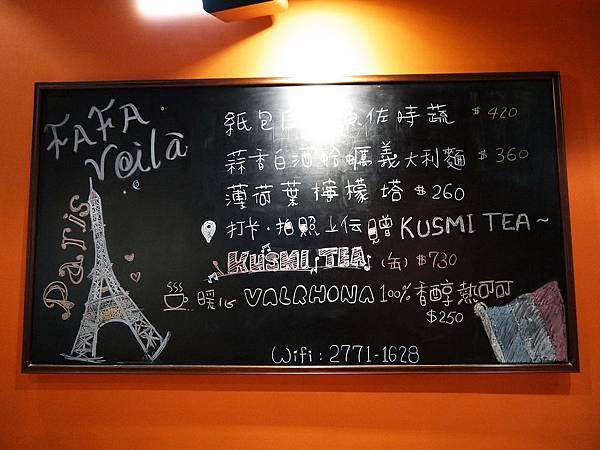 FAFA
Voilà
Paris
紙包 佐時蔬 $420
蒜香白酒蛤蠣義大利麵 $360
薄荷葉檸檬塔 $260
打卡·拍照上传贈 KUSMI TEA~
KUSMI TEA (缶) $730
暖心 VALRHONA 100% 香醇熱可可
$250
Wifi : 2771-1628